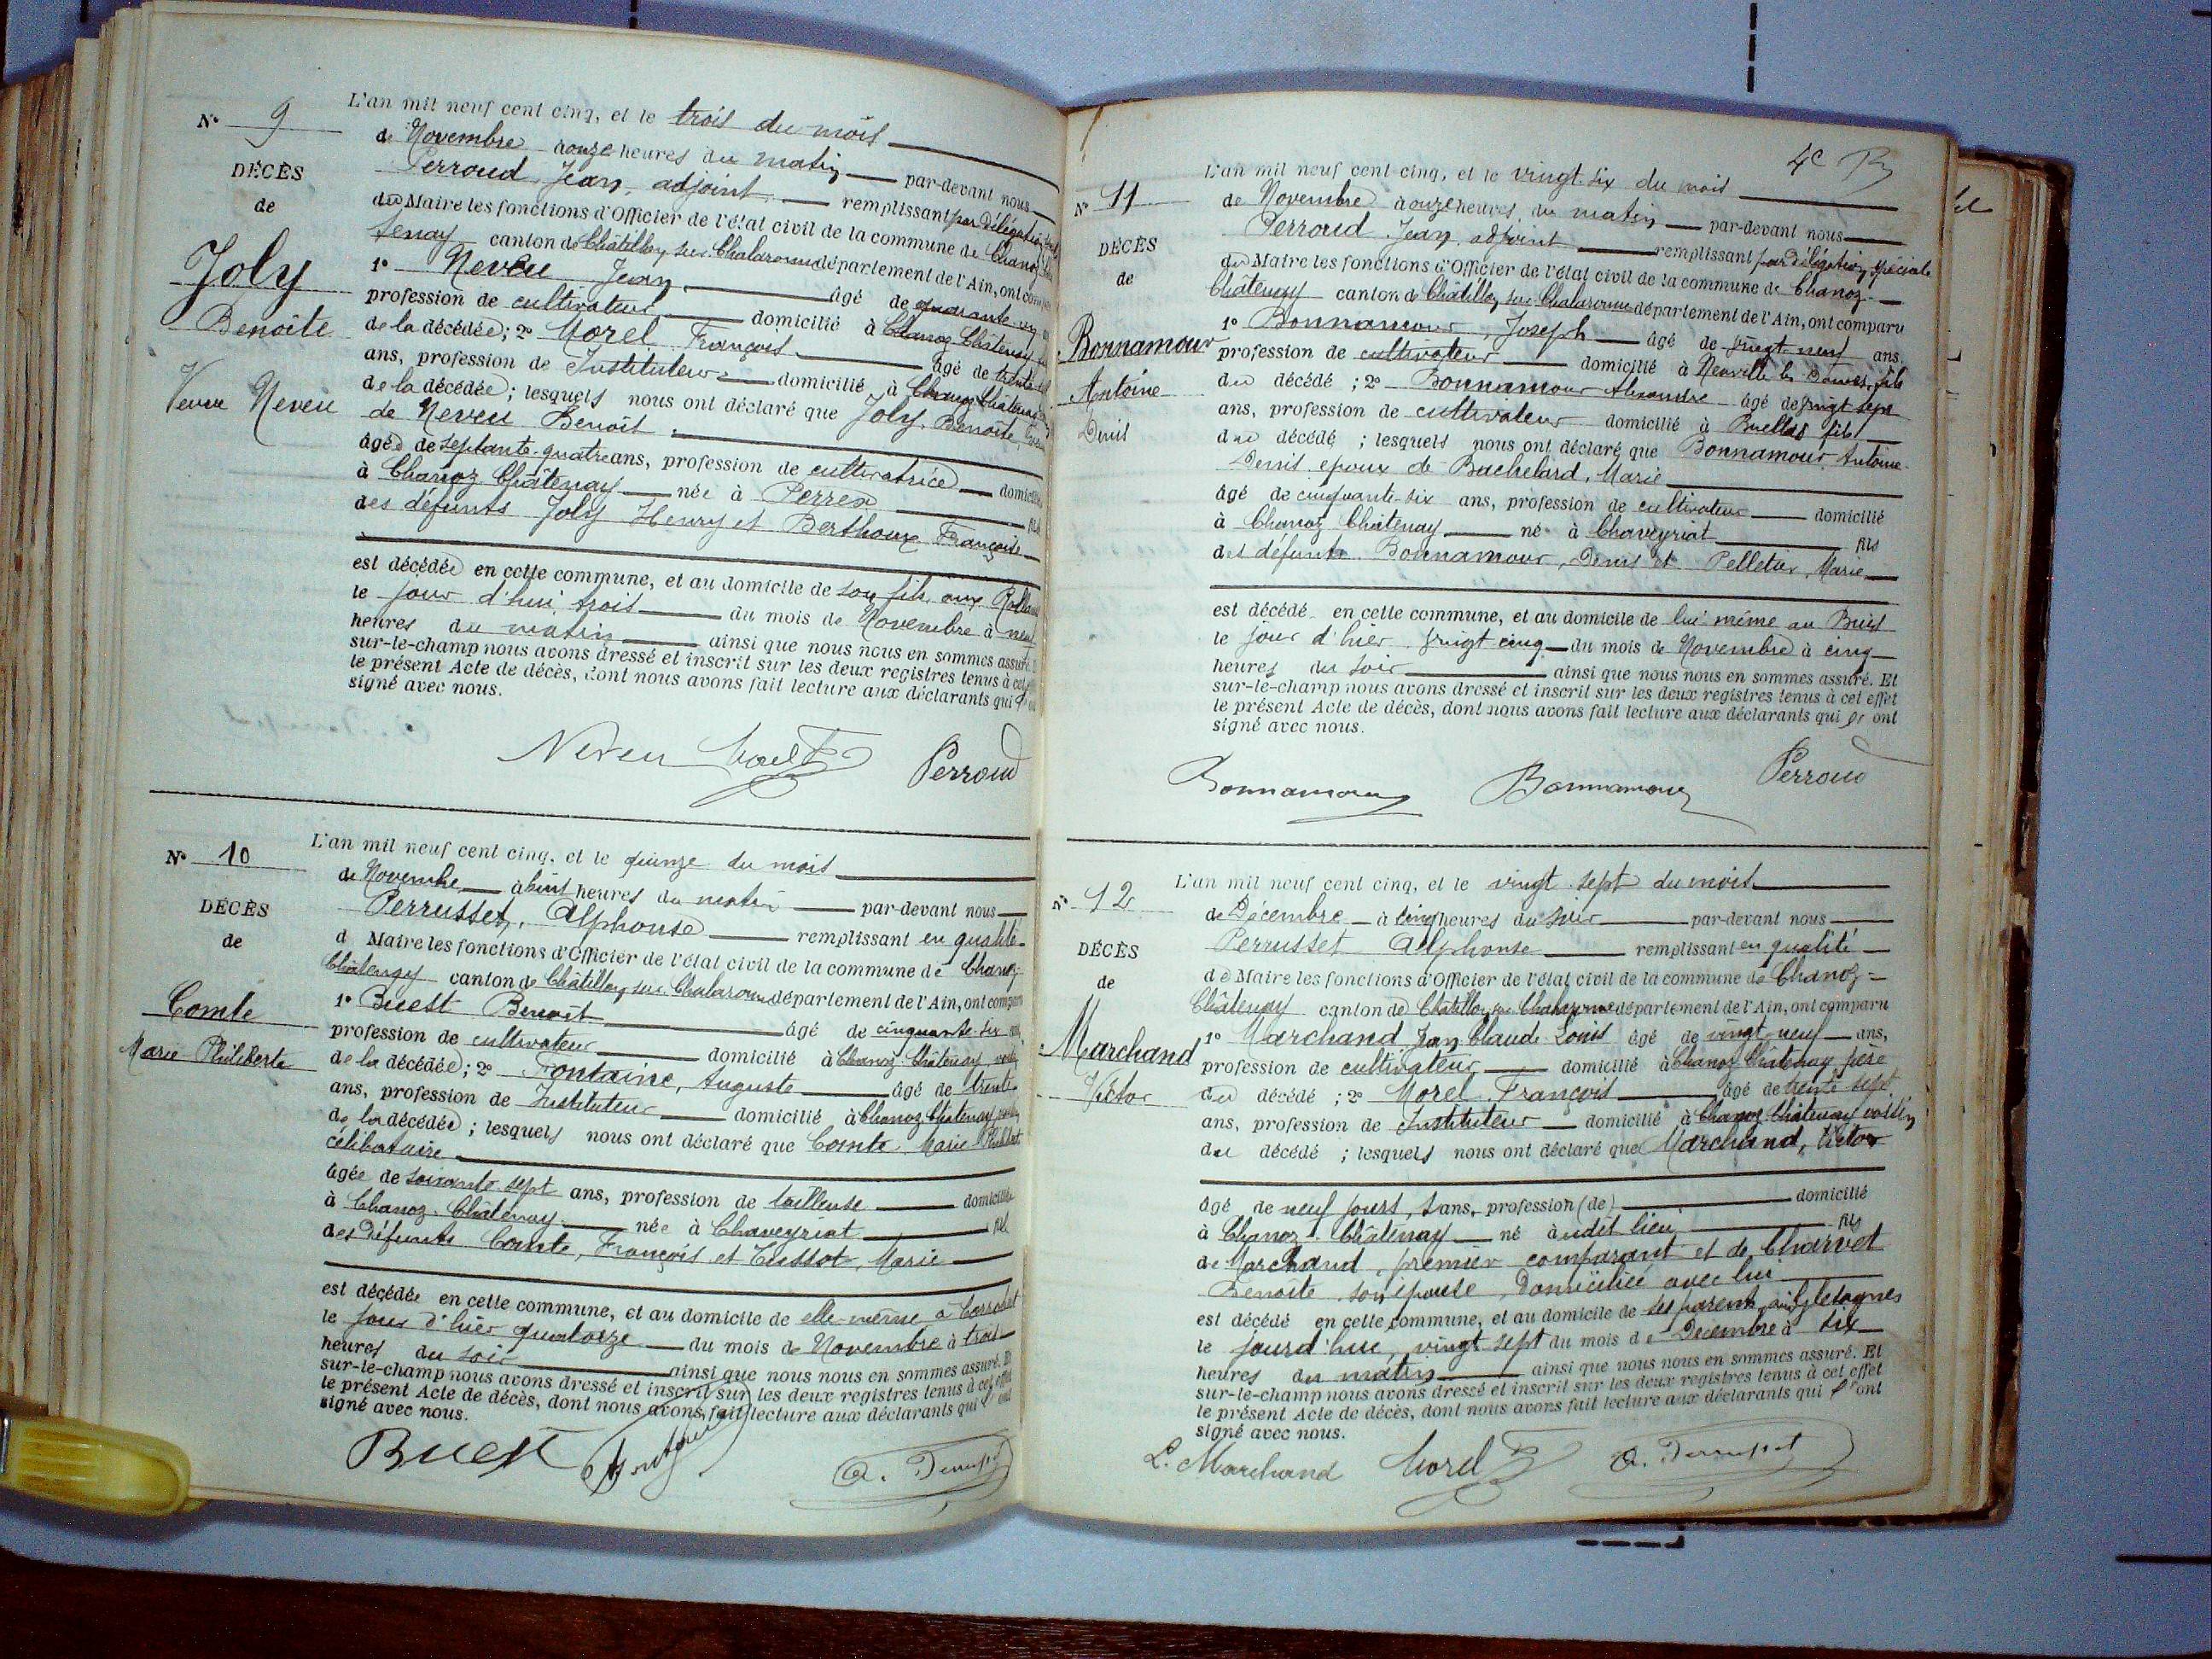 N° 9
DÉCÈS
de
Joly
Benoîte
Veuve Neveu
L'an mil neuf cent cinq, et le trois du mois
de Novembre à onze heures du matin par-devant nous
Perroud Jean, adjoint remplissant par délégation
du Maire les fonctions d'Officier de l'état civil de la commune de Chanoz-Châ
tenay canton de Châtillon sur Chalaronne département de l'Ain, ont comparu
1° Neveu Jean âgé de quarante-un
profession de cultivateur domicilié à Chanoz Châtenay
de la décédée; 2° Morel François âgé de trente
ans, profession de Instituteur domicilié à Chanoz Châtenay
de la décédée; lesquels nous ont déclaré que Joly, Benoîte,
de Neveu Benoît
âgée de septante-quatre ans, profession de cultivatrice domiciliée
à Chanoz Châtenay née à Perrex fille
des défunts Joly Henry et Berthoux Françoise
est décédée en cette commune, et au domicile de son fils aux
le jour d'hui trois du mois de Novembre à neuf
heures du matin ainsi que nous nous en sommes assuré. Et
sur-le-champ nous avons dressé et inscrit sur les deux registres tenus à cet effet
le présent Acte de décès, dont nous avons fait lecture aux déclarants qui ont
signé avec nous.
Neveu Morel Perroud
N° 10
DÉCÈS
de
Comte
Marie Philiberte
L'an mil neuf cent cinq, et le quinze du mois
de Novembre à huit heures du matin par-devant nous
Perrusset, Alphonse remplissant en qualité
d Maire les fonctions d'Officier de l'état civil de la commune de Chanoz-
Châtenay canton de Châtillon sur Chalaronne département de l'Ain, ont comparu
1° Buest Benoît âgé de cinquante-six ans,
profession de cultivateur domicilié à Chanoz-Châtenay voisin
de la décédée; 2° Fontaine, Auguste âgé de trente
ans, profession de Instituteur domicilié à Chanoz Châtenay voisin
de la décédée; lesquels nous ont déclaré que Comte Marie Philibert
célibataire
âgée de soixante-sept ans, profession de tailleuse domiciliée
à Chanoz-Châtenay née à Chaveyriat fille
des défunts Comte, François et Tissot, Marie
est décédée en cette commune, et au domicile de elle-même à
le jour d'hier quatorze du mois de Novembre à trois
heures du soir ainsi que nous nous en sommes assuré. Et
sur-le-champ nous avons dressé et inscrit sur les deux registres tenus à cet effet
le présent Acte de décès, dont nous avons fait lecture aux déclarants qui ont
signé avec nous.
Buest A. Perrusset
N° 11
DÉCÈS
de
Bonnamour
Antoine
Denis
L'an mil neuf cent cinq, et le vingt-six du mois
de Novembre à onze heures du matin par-devant nous
Perroud Jean adjoint remplissant par délégation spéciale
du Maire les fonctions d'Officier de l'état civil de la commune de Chanoz-
Châtenay canton de Châtillon sur Chalaronne département de l'Ain, ont comparu
1° Bonnamour, Joseph âgé de vingt-neuf ans,
profession de cultivateur domicilié à Neuville les Dames fils
du décédé; 2° Bonnamour Alexandre âgé de vingt sept
ans, profession de cultivateur domicilié à Buellas fils
du décédé; lesquels nous ont déclaré que Bonnamour Antoine-
Denis époux de Bachelard, Marie
âgé de cinquante-six ans, profession de cultivateur domicilié
à Chanoz Châtenay né à Chaveyriat fils
des défunts Bonnamour, Denis et Pelletier, Marie
est décédé en cette commune, et au domicile de lui-même au Buis
le jour d'hier vingt cinq du mois de Novembre à cinq
heures du soir ainsi que nous nous en sommes assuré. Et
sur-le-champ nous avons dressé et inscrit sur les deux registres tenus à cet effet
le présent Acte de décès, dont nous avons fait lecture aux déclarants qui ont
signé avec nous.
Bonnamour Bonnamour Perroud
N° 12
DÉCÈS
de
Marchand
Victor
L'an mil neuf cent cinq, et le vingt-sept du mois
de Décembre à cinq heures du soir par-devant nous
Perrusset Alphonse remplissant en qualité
de Maire les fonctions d'Officier de l'état civil de la commune de Chanoz-
Châtenay canton de Châtillon sur Chalaronne département de l'Ain, ont comparu
1° Marchand Jean Claude Louis âgé de vingt-neuf ans,
profession de cultivateur domicilié à Chanoz Châtenay père
du décédé; 2° Morel François âgé de trente sept
ans, profession de Instituteur domicilié à Chanoz Châtenay voisin
du décédé; lesquels nous ont déclaré que Marchand, Victor
âgé de neuf jours, sans, profession (de) domicilié
à Chanoz-Châtenay né audit lieu fils
de Marchand, premier comparant et de Charvet
Benoîte son épouse, domiciliée avec lui
est décédé en cette commune, et au domicile de ses parents aux
le jourd'hui, vingt-sept du mois de Décembre à six
heures du matin ainsi que nous nous en sommes assuré. Et
sur-le-champ nous avons dressé et inscrit sur les deux registres tenus à cet effet
le présent Acte de décès, dont nous avons fait lecture aux déclarants qui ont
signé avec nous.
L. Marchand Morel A. Perrusset